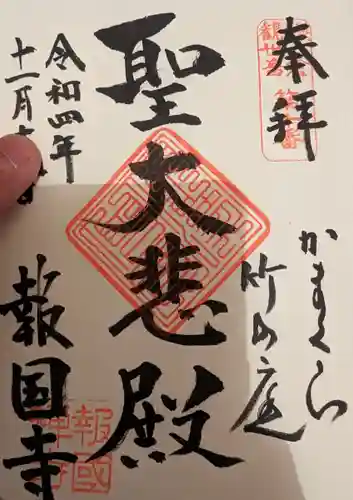 奉拝
かまくら
竹の庭
聖大悲殿
令和四年
十一月
報国寺
報國